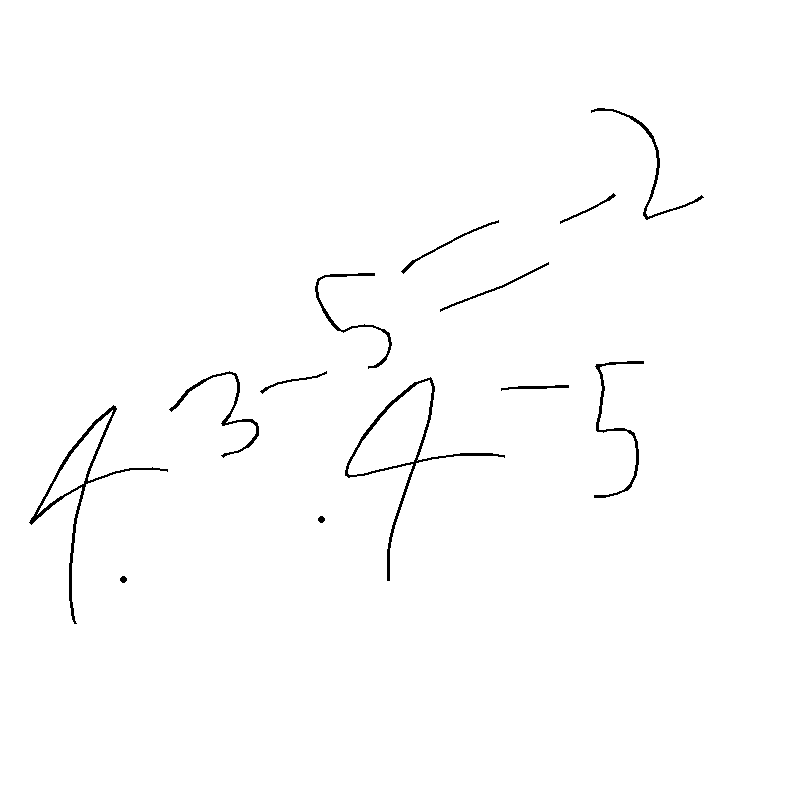 4. 3-5=-2
.4-5